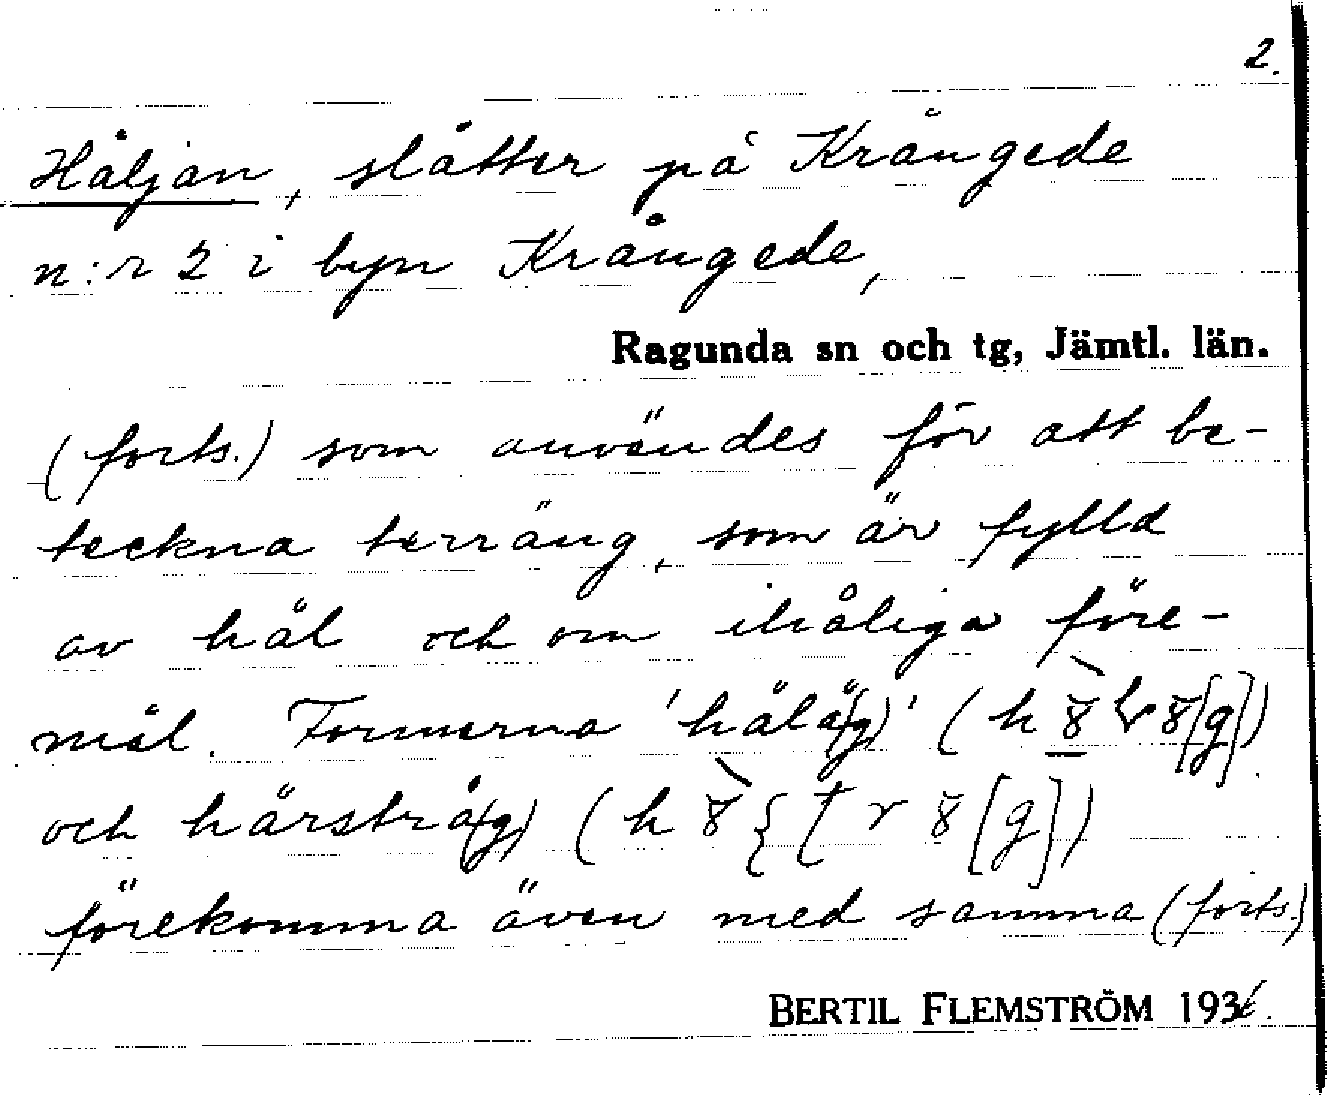 2.
Håljan, slåtter på Krångede
n:r 2 i byn Krångede,
Ragunda sn och tg, Jämtl. län.
(forts.) som användes för att be-
teckna terräng, som är fylld
av hål och om ihåliga före-
mål. Formerna 'hålå(g)'
och hårstrå(g)
förekomma även med samma (forts.)
BERTIL FLEMSTRÖM 193